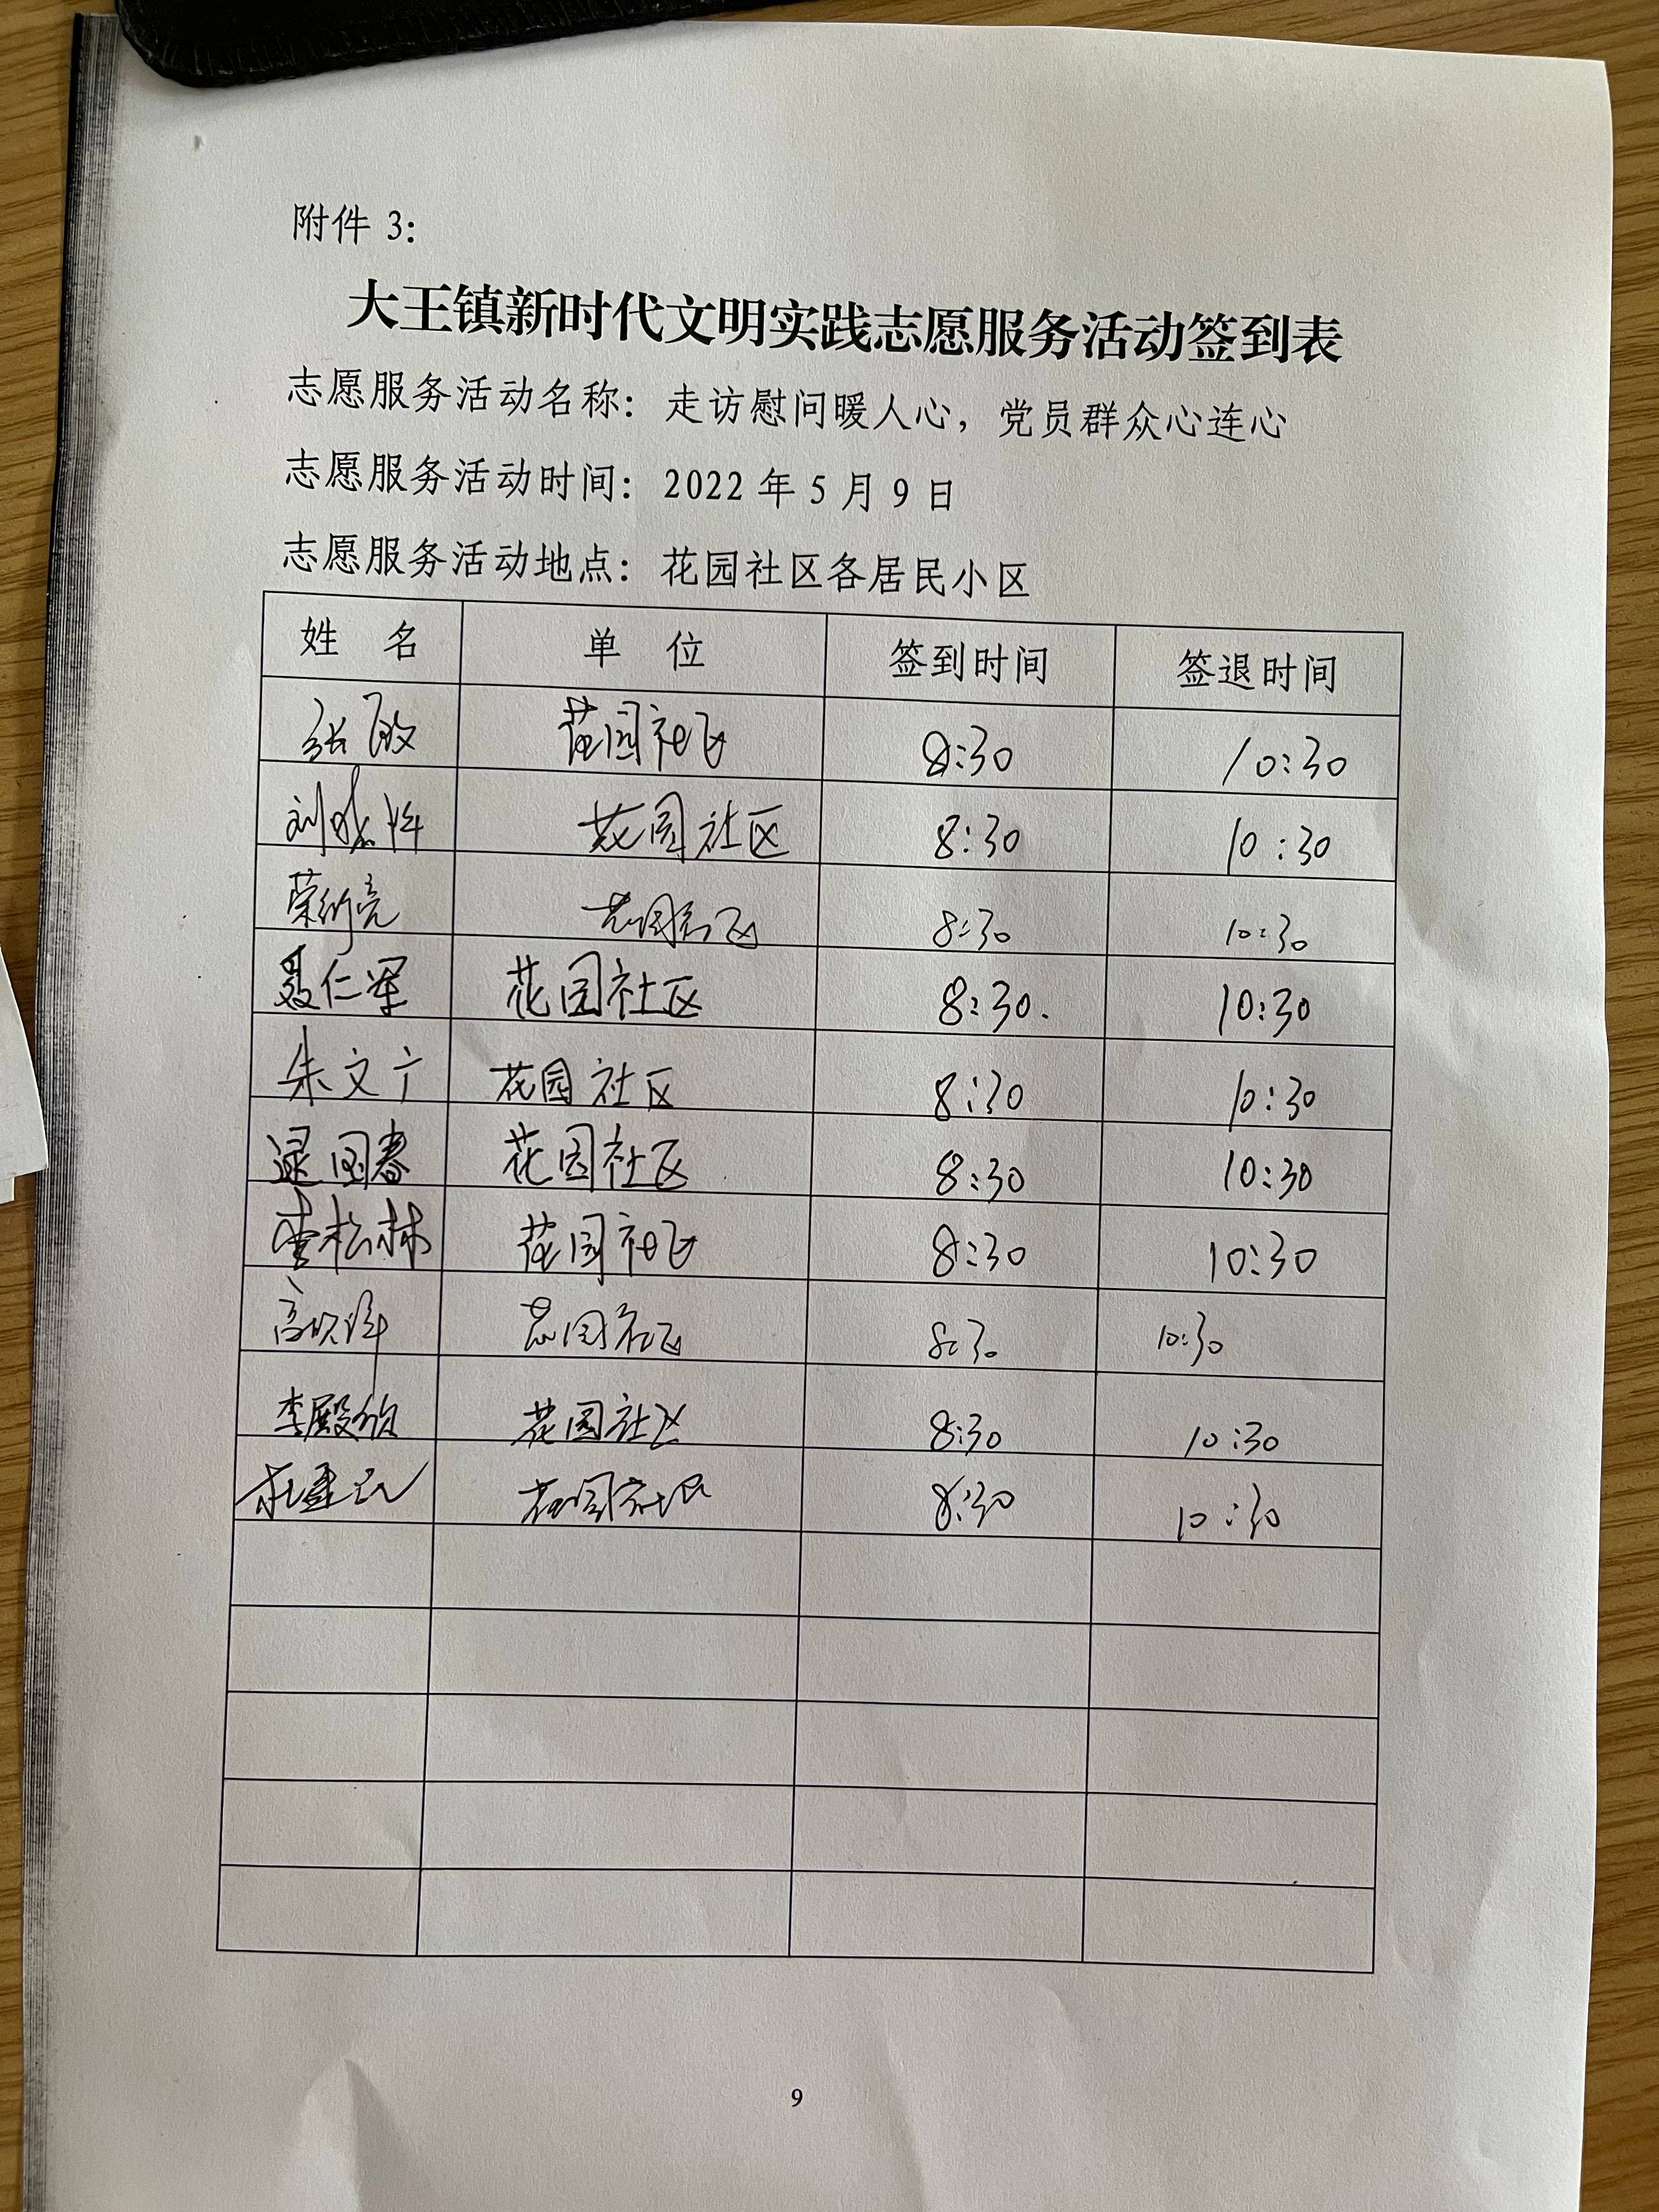 附件 3:
大王镇新时代文明实践志愿服务活动签到表
志愿服务活动名称: 走访慰问暖人心, 党员群众心连心
志愿服务活动时间: 2022 年 5 月 9 日
志愿服务活动地点: 花园社区各居民小区
姓 名 单 位 签到时间 签退时间
张敏 花园社区 8:30 10:30
刘 花园社区 8:30 10:30
荣 亮 花园社区 8:30 10:30
聂仁军 花园社区 8:30. 10:30
朱文广 花园社区 8:30 10:30
逯国春 花园社区 8:30 10:30
李松林 花园社区 8:30 10:30
高 花园社区 8:30 10:30
李殿 花园社区 8:30 10:30
花园社区 8:30 10:30
9